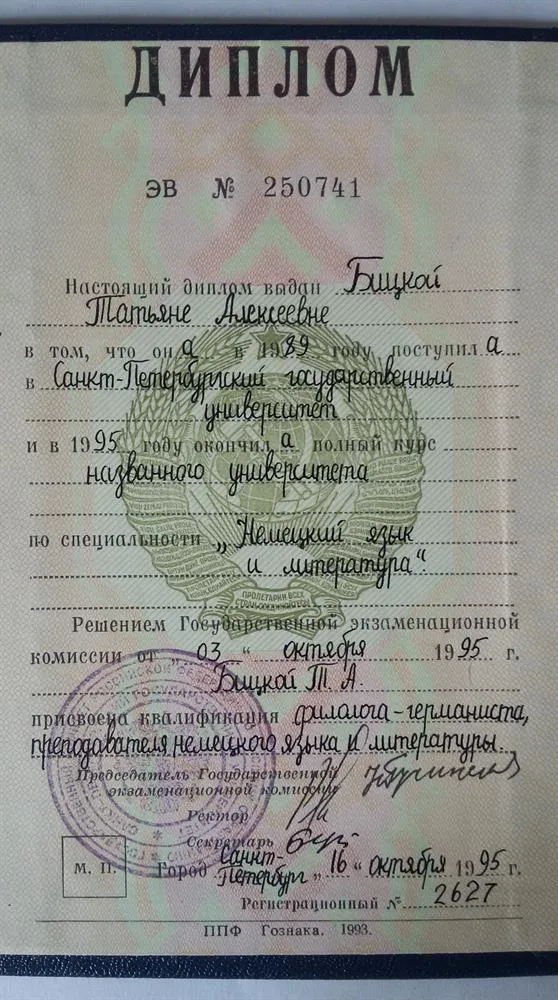 ДИПЛОМ
ЭВ № 250741
Настоящий диплом выдан Бицкой
Татьяне Алексеевне
в том, что он а в 1989 году поступил а
в Санкт-Петербургский государственный
университет
и в 1995 году окончил а полный курс
названного университета
по специальности „Немецкий язык
и литература“.
ПРОЛЕТАРИИ ВСЕХ
СТРАН, СОЕДИНЯЙТЕСЬ!
Решением Государственной экзаменационной
комиссии от „03“ октября 1995 г.
Бицкой Т. А.
присвоена квалификация филолога-германиста,
преподавателя немецкого языка и литературы.
Председатель Государственной
экзаменационной комиссии
Ректор
Секретарь
М. П.
Город Санкт-
Петербург „16“ октября 1995 г.
Регистрационный № 2627
ППФ Гознака. 1993.